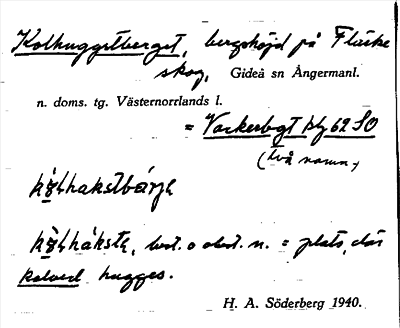 Kolhuggetberget, bergshöjd på Fläcke
skog, Gideå sn Ångermanl.
n. doms. tg. Västernorrlands l.
= Vackerbgt blg 62 SO
(två namn)
kɷ̀lhakstbärjɛ
kɷ̀lhákstɛ, best. o obest. n. = plats, där
kolved hugges.
H. A. Söderberg 1940.